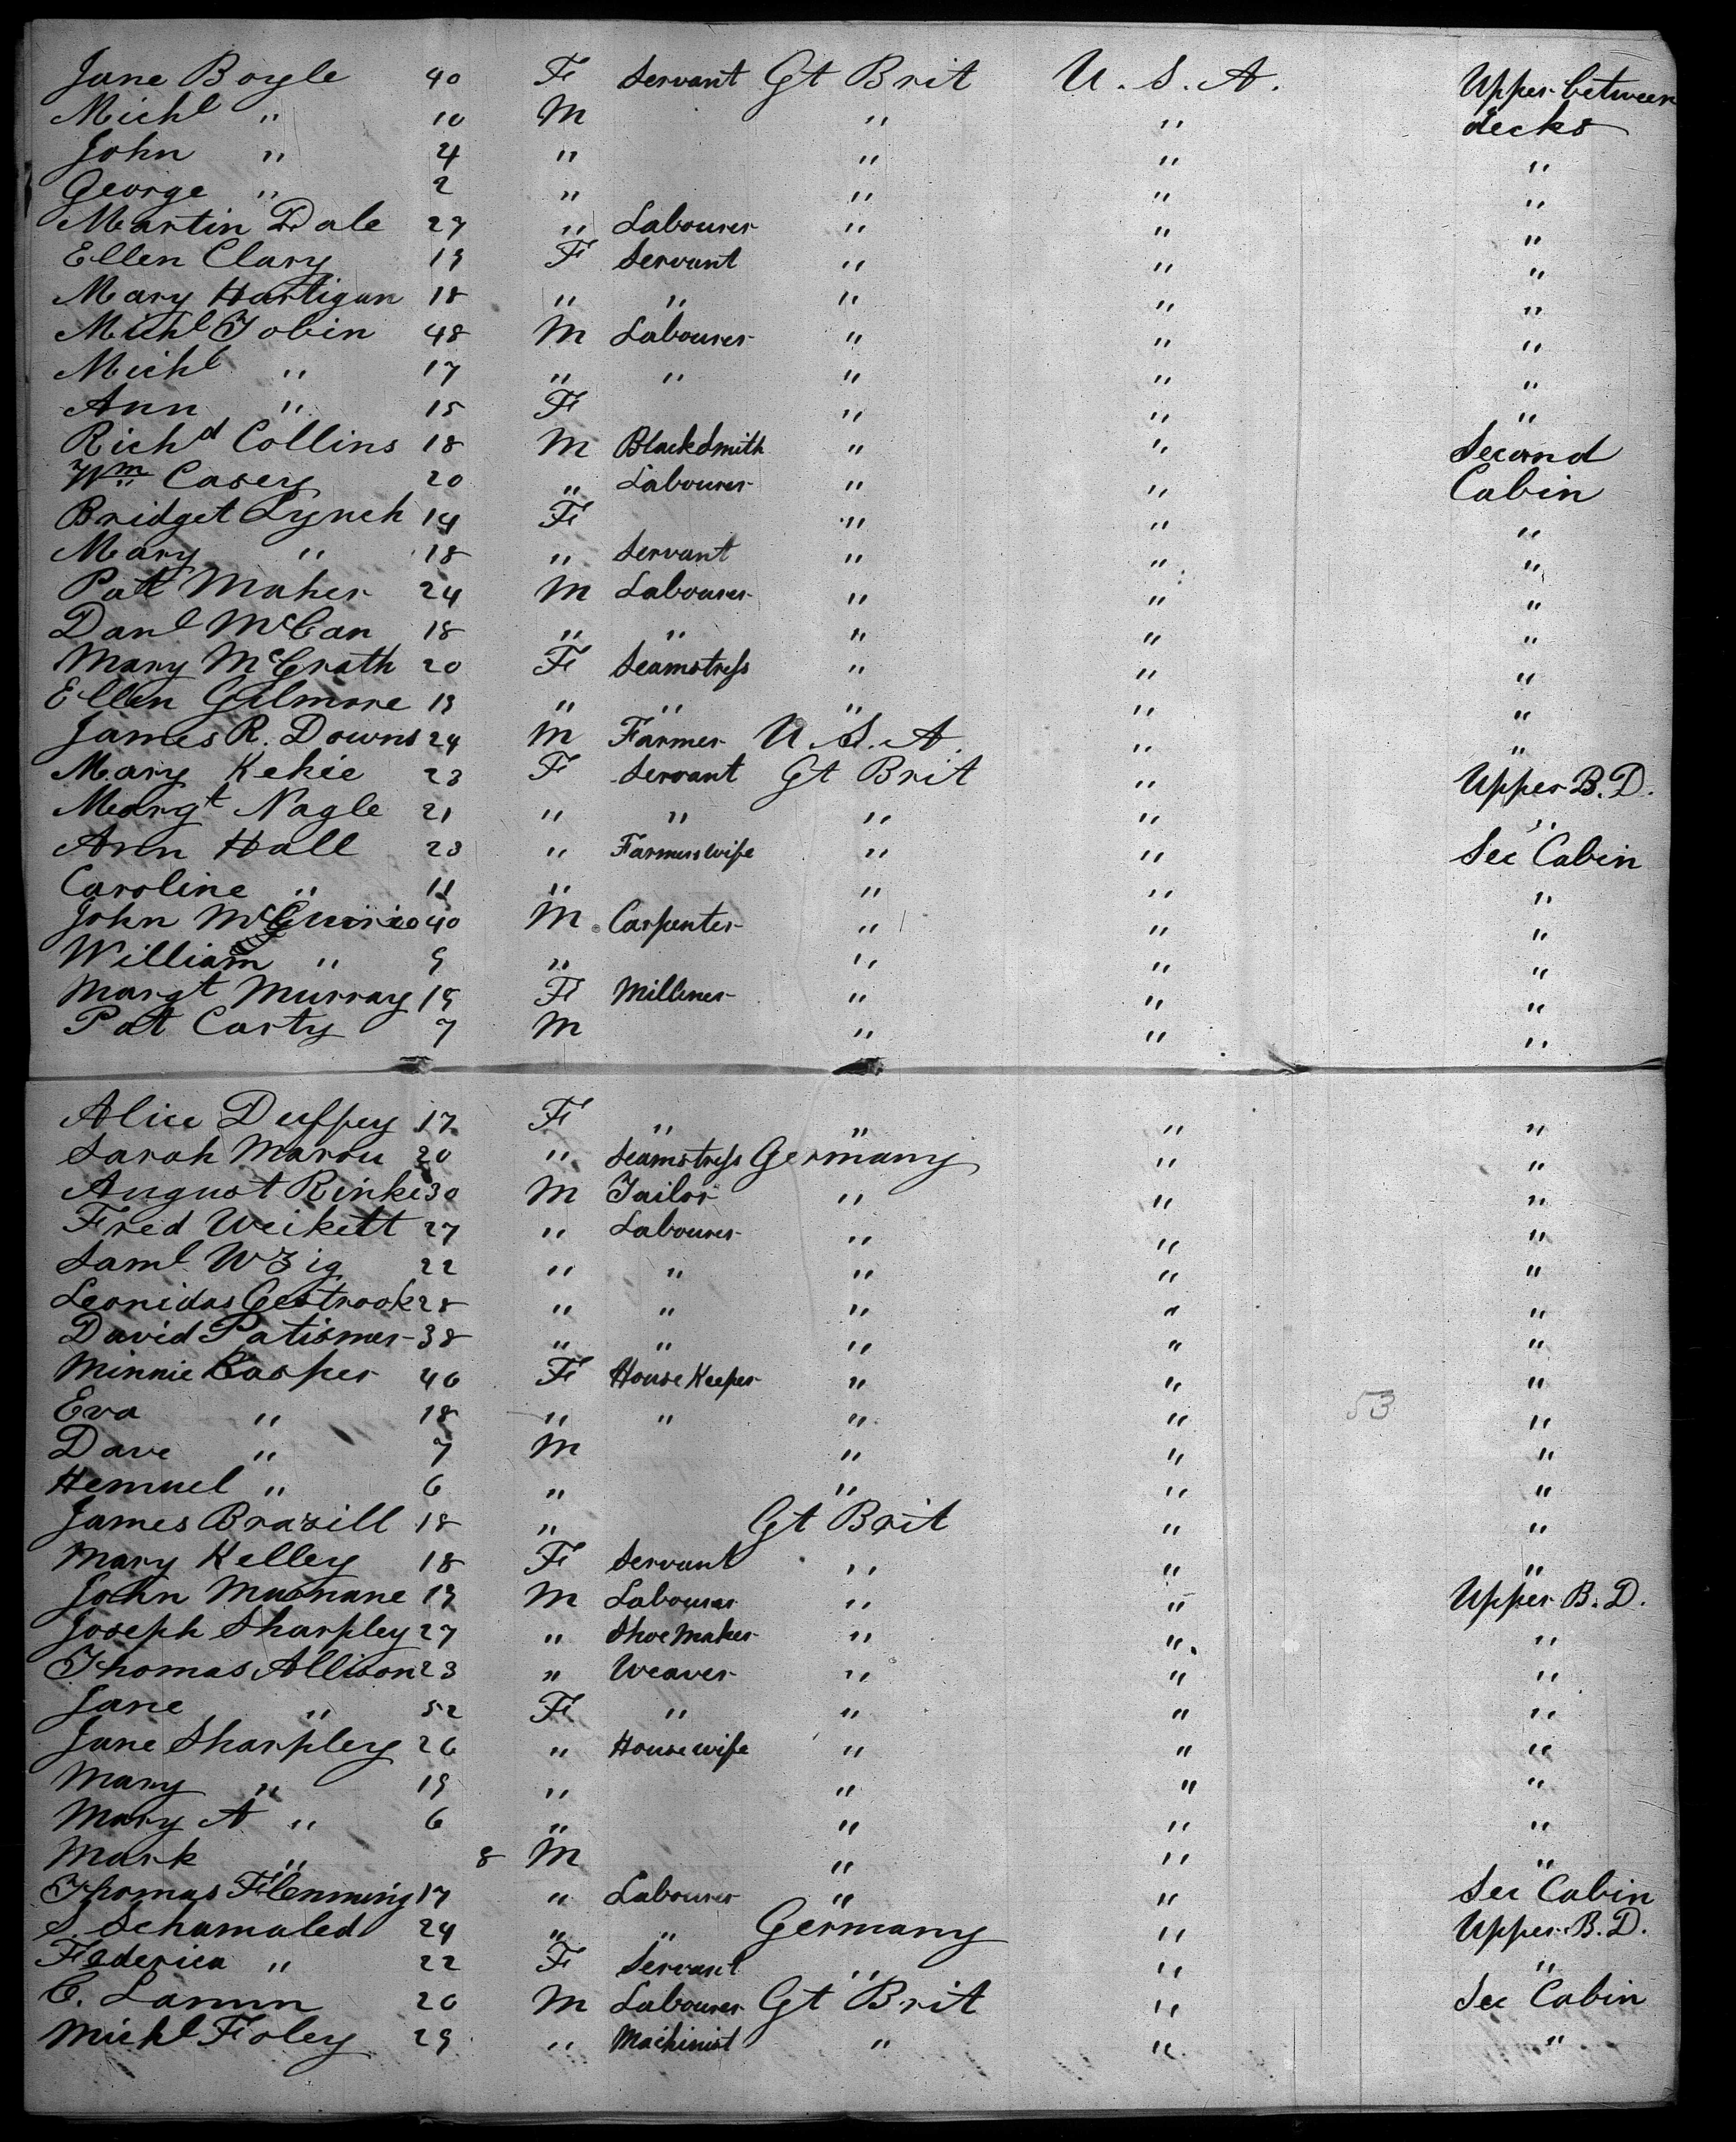 Jane Boyle 40 F Servant Gt Brit U.S.A. Upper between
Michl " 10 M " " decks
John " 4 " " " "
George " 2 " " " "
Martin Dale 27 " Labourer " " "
Ellen Clary 19 F Servant " " "
Mary Hartigan 18 " " " " "
Michl Tobin 48 M Labourer " " "
Michl " 17 " " " " "
Ann " 15 F " " "
Richd Collins 18 M Blacksmith " " Second
Wm Casey 20 " Labourer " " Cabin
Bridget Lynch 14 F " " "
Mary " 18 " Servant " " "
Patt Maher 24 M Labourer " " "
Danl McCan 18 " " " " "
Mary McGrath 20 F Seamstress " " "
Ellen Gilmore 19 " " " " "
James R. Downs 24 M Farmer U.S.A. " "
Mary Kehie 23 F Servant Gt Brit " Upper B.D.
Margt Nagle 21 " " " " "
Ann Hall 23 " Farmers wife " " Sec Cabin
Caroline " 11 " " " "
John McGuire 40 M Carpenter " " "
William " 9 " " " "
Margt Murray 19 F Milliner " " "
Pat Carty 7 M " " "
Alice Duffey 17 F " " " "
Sarah 20 " Seamstress Germany " "
August Rinke 30 M Tailor " " "
Fred Weikett 27 " Labourer " " "
Saml W3ig 22 " " " " "
Leonidas Gestrook 28 " " " " "
David Patismer 38 " " " " "
Minnie Kasper 46 F House Keeper " " "
Eva " 18 " " " " 53 "
Dave " 7 M " " "
Hemuel " 6 " " " "
James Brazill 18 " Gt Brit " "
Mary Kelley 18 F Servant " " "
John Murnane 19 M Labourer " " Upper B.D.
Joseph Sharpley 27 " Shoe Maker " " "
Thomas Allison 23 " Weaver " " "
Jane " 52 F " " " "
Jane Sharpley 26 " House wife " " "
Mary " 19 " " " "
Mary A " 6 " " " "
Mark " 8 M " " "
Thomas Flemming 17 " Labourer " " Sec Cabin
S. Schamaled 24 " " Germany " Upper B.D.
Federica " 22 F Servant " " "
C. Lamm 20 M Labourer Gt Brit " Sec Cabin
Michl Foley 29 " Machinist " " "